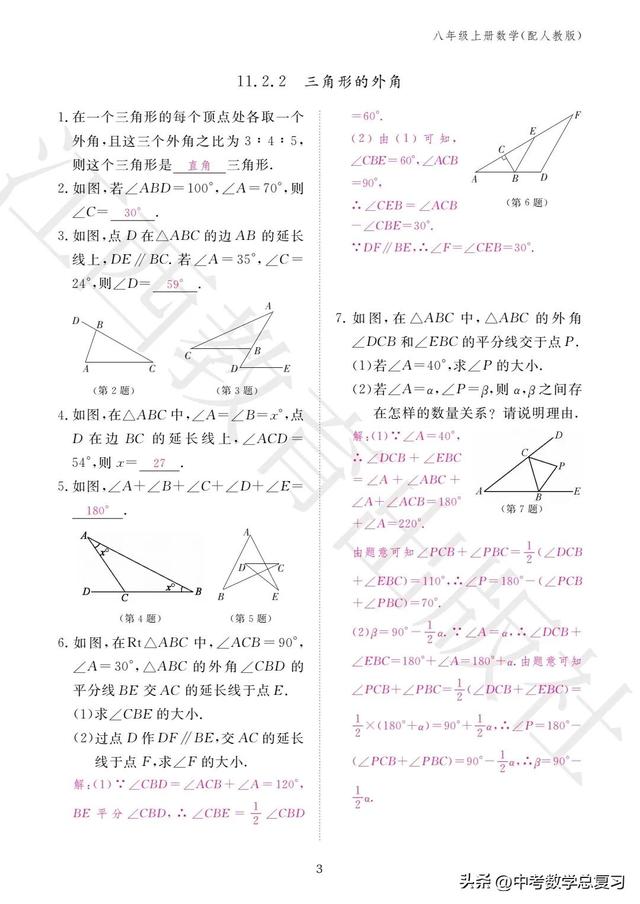 八年级上册数学(配人教版)
11.2.2 三角形的外角
1.在一个三角形的每个顶点处各取一个
外角,且这三个外角之比为3∶4∶5,
则这个三角形是 直角 三角形.
2.如图,若∠ABD=100°,∠A=70°,则
∠C= 30° .
3.如图,点D在△ABC的边AB的延长
线上,DE∥BC.若∠A=35°,∠C=
24°,则∠D= 59° .
D B A C
(第2题)
A C B D E
(第3题)
4.如图,在△ABC中,∠A=∠B=x°,点
D在边BC的延长线上,∠ACD=
54°,则x= 27 .
5.如图,∠A+∠B+∠C+∠D+∠E=
180° .
A x° x° D C B
(第4题)
A D C B E
(第5题)
6.如图,在Rt△ABC中,∠ACB=90°,
∠A=30°,△ABC的外角∠CBD的
平分线BE交AC的延长线于点E.
(1)求∠CBE的大小.
(2)过点D作DF∥BE,交AC的延长
线于点F,求∠F的大小.
解:(1)∵∠CBD=∠ACB+∠A=120°,
BE平分∠CBD,∴∠CBE=1/2∠CBD
=60°.
(2)由(1)可知,
∠CBE=60°,∠ACB
=90°,
∴∠CEB=∠ACB
-∠CBE=30°.
∵DF∥BE,∴∠F=∠CEB=30°.
F E C A B D
(第6题)
7.如图,在△ABC中,△ABC的外角
∠DCB和∠EBC的平分线交于点P.
(1)若∠A=40°,求∠P的大小.
(2)若∠A=α,∠P=β,则α,β之间存
在怎样的数量关系?请说明理由.
解:(1)∵∠A=40°,
∴∠DCB+∠EBC
=∠A+∠ABC+
∠A+∠ACB=180°
+∠A=220°.
D C P A B E
(第7题)
由题意可知∠PCB+∠PBC=1/2(∠DCB
+∠EBC)=110°,∴∠P=180°-(∠PCB
+∠PBC)=70°.
(2)β=90°-1/2α.∵∠A=α,∴∠DCB+
∠EBC=180°+∠A=180°+α.由题意可知
∠PCB+∠PBC=1/2(∠DCB+∠EBC)=
1/2×(180°+α)=90°+1/2α,∴∠P=180°-
(∠PCB+∠PBC)=90°-1/2α,∴β=90°-
1/2α.
江西教育出版社
3
头条@中考数学总复习